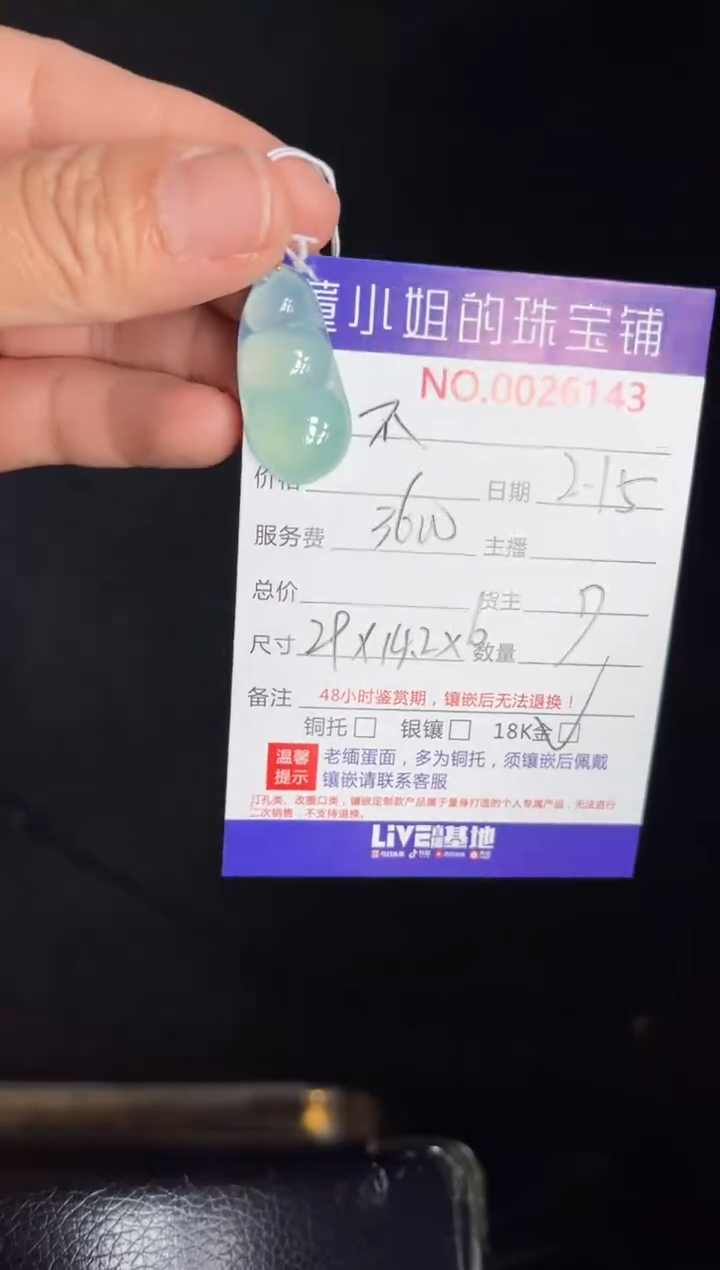 董小姐的珠宝铺
NO.0026143
不
价格 日期 2-15
服务费 3600 主播
总价 货主
尺寸 29×14.2×6 数量
备注 48小时鉴赏期，镶嵌后无法退换！
铜托 □ 银镶 □ 18K金 □
温馨提示
老缅蛋面，多为铜托，须镶嵌后佩戴
镶嵌请联系客服
打孔类、改圈口类、镶嵌定制款产品属于量身打造的个人专属产品，无法进行
二次销售，不支持退换。
LiVE直播基地